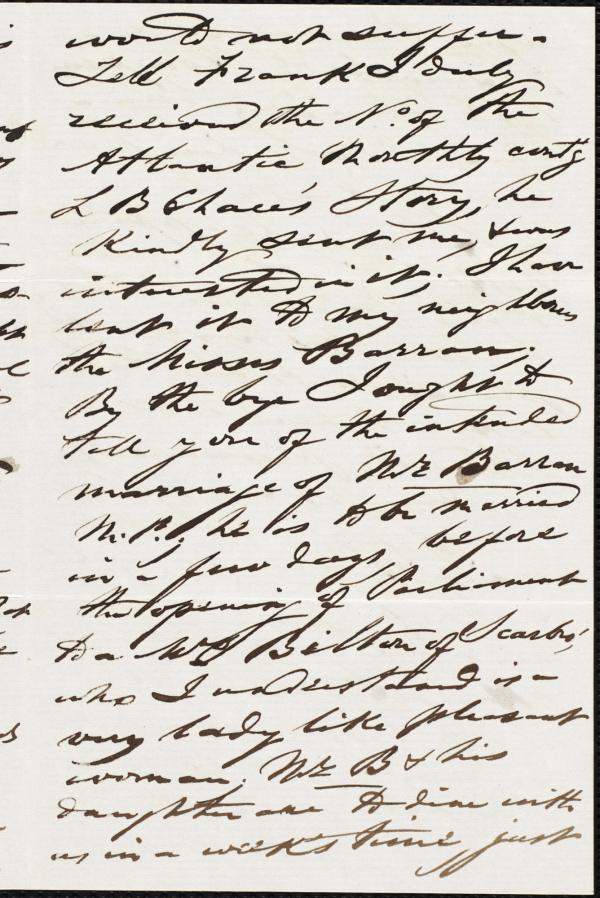 would not suffer.
Tell Frank I duly
received the No. of the
Atlantic Monthly contg
L B Chace's Story, he
kindly sent me, & was
interested in it; I have
lent it to my neighbours
the Misses Barran;
By the bye I ought to
tell you of the intended
marriage of Mr Barran
M.P., he is to be married
in a few days, before
the opening of Parliament
to a Mrs Bilton of Scarbro,
who I understand is a
very lady like pleasant
woman. Mr B & his
daughter are to dine with
us in a week's time, just